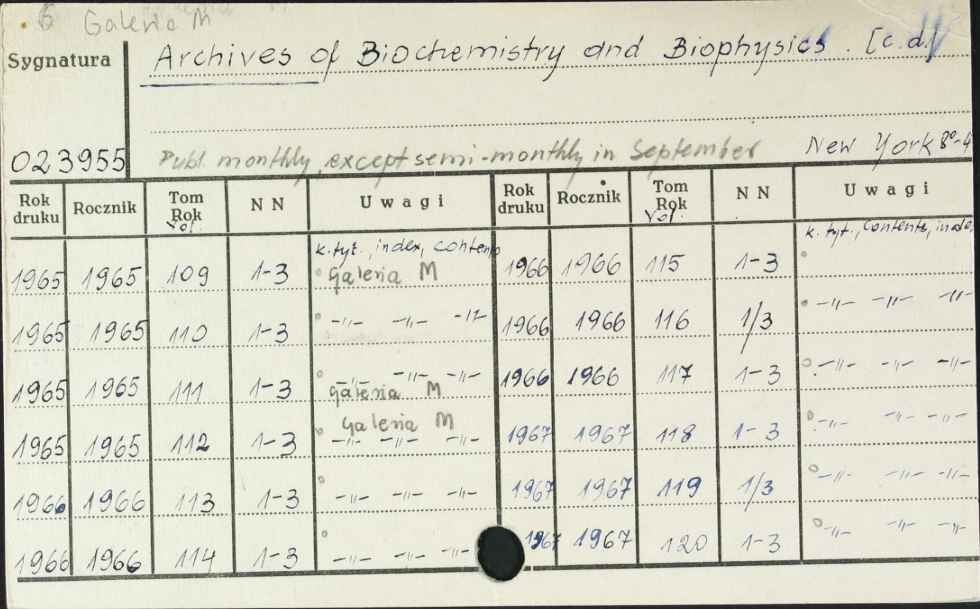 6 Galeria M
Sygnatura Archives of Biochemistry and Biophysics. [c.d.]
023955 Publ. monthly, except semi-monthly in September New York 8º-4
Rok druku Rocznik Tom Rok Vol. NN Uwagi Rok druku Rocznik Tom Rok Vol. NN Uwagi
k. tyt., index, contents k. tyt., contents, index,
1965 1965 109 1-3 Galeria M 1966 1966 115 1-3
1965 1965 110 1-3 -"- -"- -"- 1966 1966 116 1/3 -"- -"- -"-
1965 1965 111 1-3 -"- -"- -"- Galeria M 1966 1966 117 1-3 -"- -"- -"-
1965 1965 112 1-3 Galeria M -"- -"- -"- 1967 1967 118 1-3 -"- -"- -"-
1966 1966 113 1-3 -"- -"- -"- 1967 1967 119 1/3 -"- -"- -"-
1966 1966 114 1-3 -"- -"- -"- 1967 1967 120 1-3 -"- -"- -"-